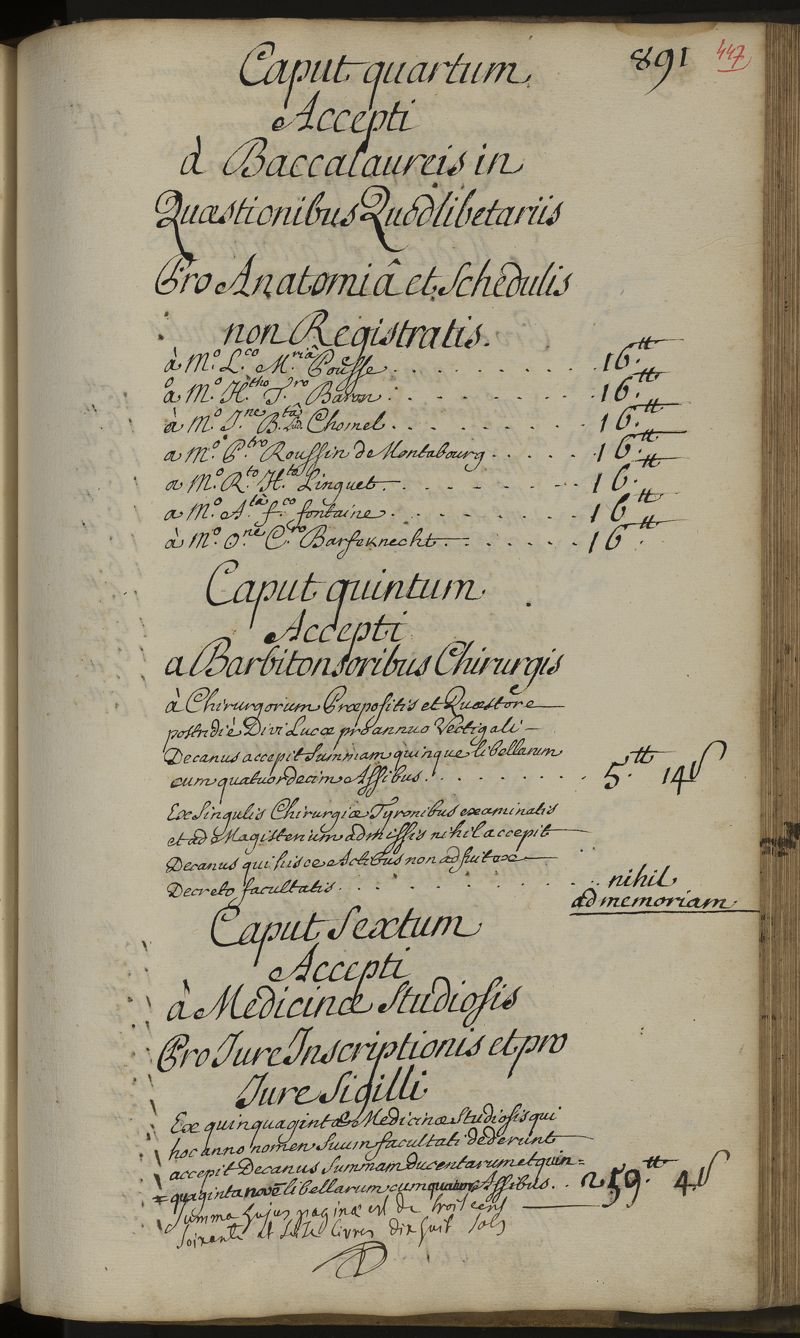 891 447
Caput quartum
Accepti
à Baccalaureis in
Quæstionibus Quodlibetariis
Pro Anatomiâ et Schedulis
non Registratis.
à M.º L.co M.riâ Pousse . . . . . . . . . 16.tt
à M.º H.tho T.ro Baron . . . . . . . . . 16.tt
à M.º J.ne B.tâ Chomel . . . . . . . . 16.tt
a M.º P.tro Roussin de Montabourg . . . . . 16.tt
a M.º R.to H.to Linguet . . . . . . . 16.tt
a M.º A.tâ f.co fontaine . . . . . . . . 16.tt
à M.º O.ne C.ro Barfeknecht . . . . . . 16.tt
Caput quintum
Accepti
a Barbitonsoribus Chirurgis
à Chirurgorum Præpositis et Quæstore
postridiè Divi Lucæ pro annuo Vectigali
Decanus accepit Summam quinque libellarum
cum quatuordecim Assibus . . . . . . . . 5.tt 14ſ
Ex Singulis Chirurgiæ Tyronibus examinatis
et ad Magisterium admissis nihil accepit
Decanus qui hisce Actibus non adfuit ex
Decreto facultatis . . . . . . . . . . nihil
ad memoriam
Caput Sextum
Accepti
à Medicinæ Studiosis
Pro Jure Inscriptionis et pro
Jure Sigilli
Ex quinquaginta Medicinæ Studiosis qui
hoc anno nomen Suum facultati dederunt
accepit Decanus Summam ducentarum et quin=
=quaginta novē libellarum cum quatuor Assibus . . 259.tt 4ſ
Summa hujus paginæ est de trois cens
soixante et seize livres dix huit sols